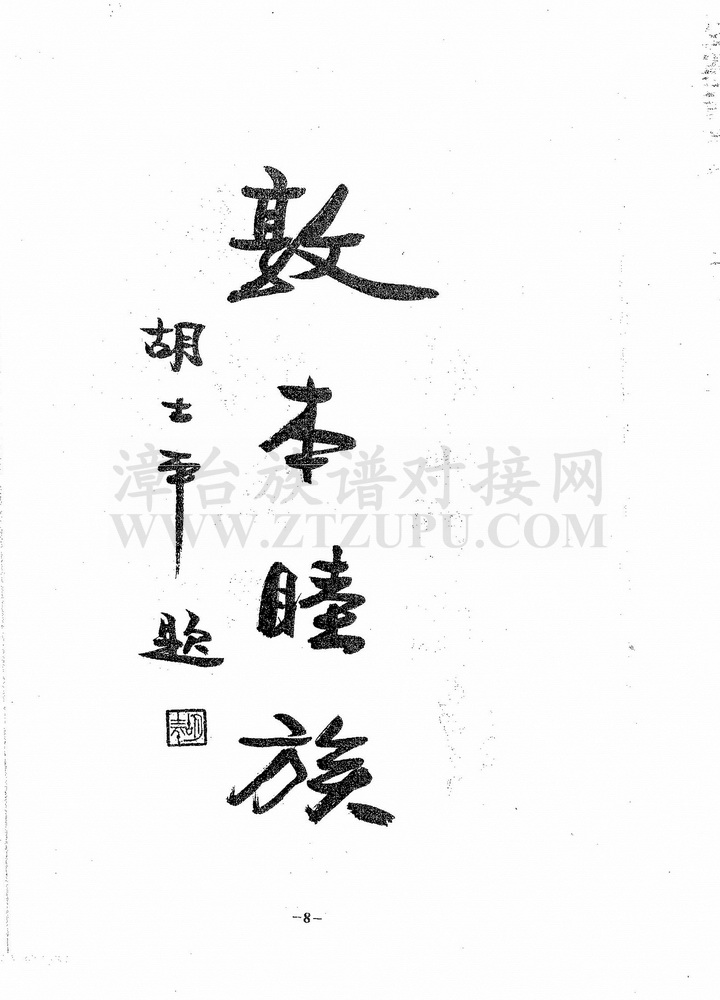 敦本睦族
胡士平 题
漳台族谱对接网
WWW.ZTZUPU.COM
-8-